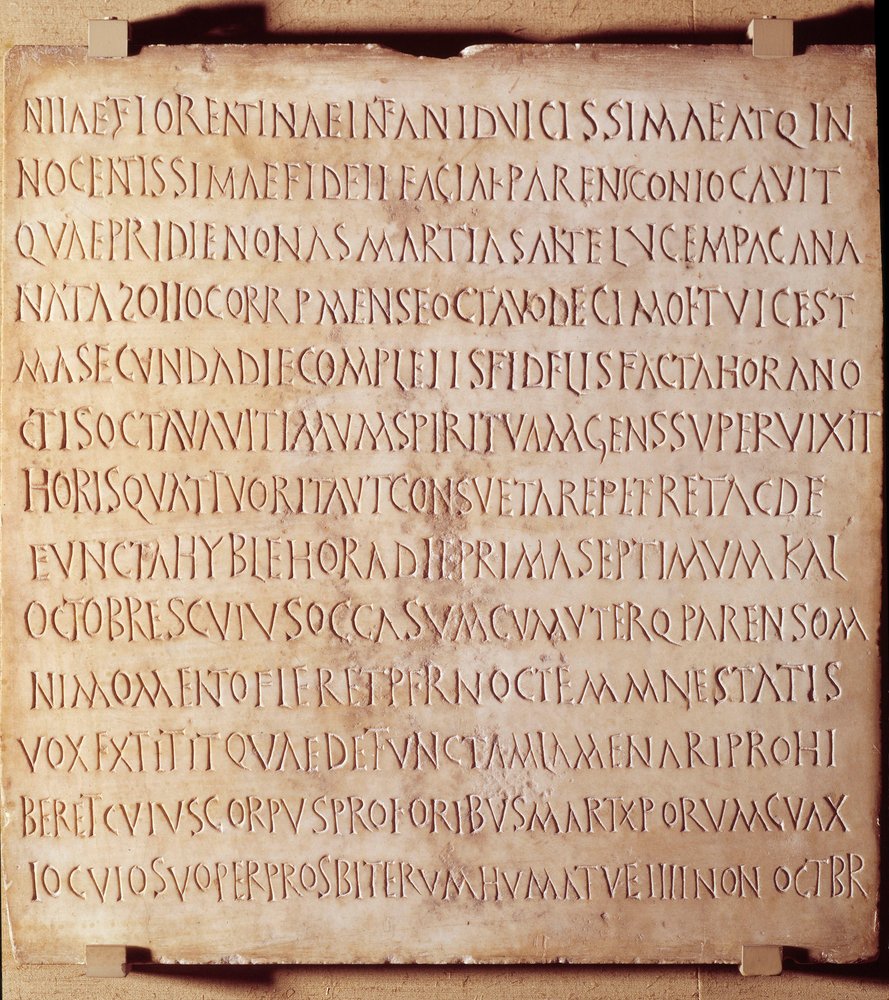 NILAE FLORENTINAE INFANI DVLCISSIMAE ATQ IN
NOCENTISSIMAE FIDELI FACTAE PARENS CONLOCAVIT
QVAE PRIDIE NONAS MARTIAS ANTE LVCEM PACANA
NATA ZOILO CORR P MENSE OCTAVO DECIMO ET VICES T
MA SECVNDA DIE COMPLETIS FIDELIS FACTA HORA NO
CTIS OCTAVA VLTIMVM SPIRITVM AGENS SUPERVIXIT
HORIS QVATTVOR ITA VT CONSVETA REPETERET AC DE
FVNCTA HYBLE HORA DIEI PRIMA SEPTIMVM KAL
OCTOBRES CVIVS OCCASVM CVM VTERQ PARENS OM
NI MOMENTO FLERET PER NOCTEM MAIESTATIS
VOX EXTITIT QVAE DEFVNCTAM LAMENARI PROHI
BERET CVIVS CORPVS PRO FORIBVS MARTXPORVM CVAX
LOCVLO SVO PER PROSBITERVM HVMATV E IIII NON OCTBR